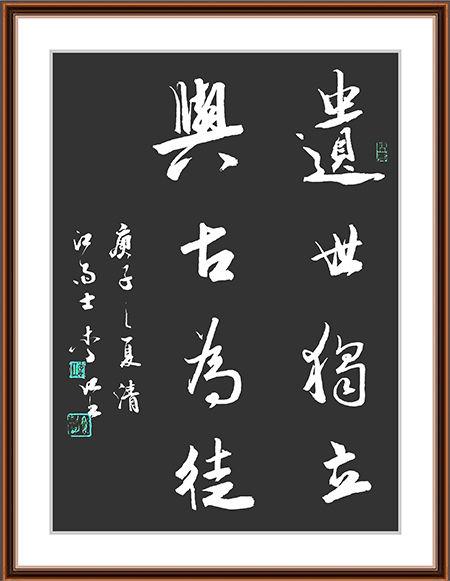 遺世獨立
與古為徒
庚子之夏清
江高士